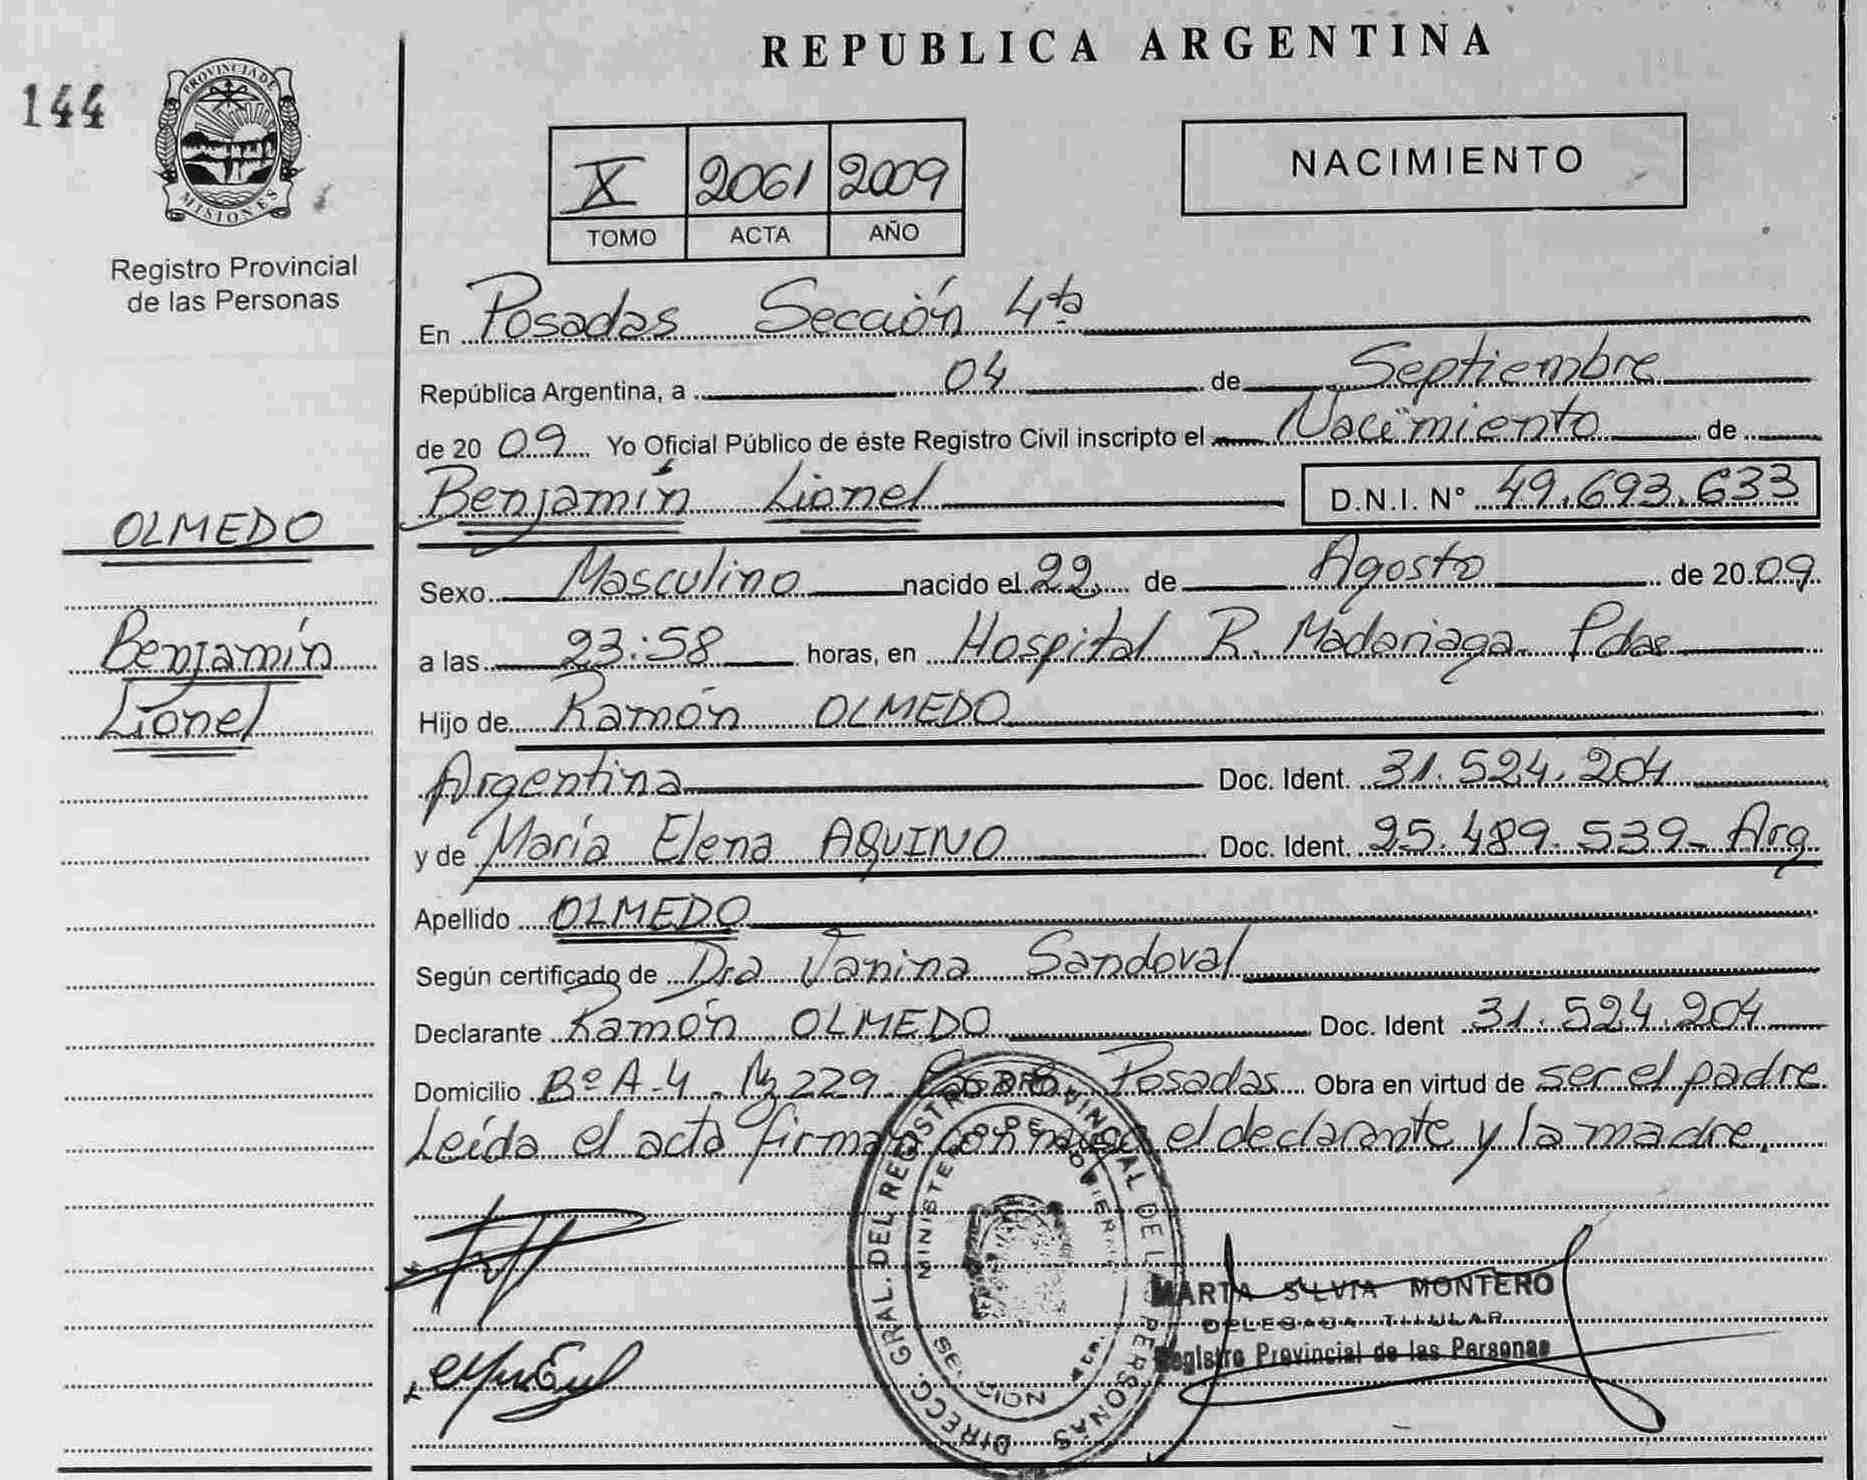 REPUBLICA ARGENTINA
144
PROVINCIA DE
MISIONES
Registro Provincial
de las Personas
X 2061 2009
TOMO ACTA AÑO
NACIMIENTO
En Posadas Sección 4ta
República Argentina, a 04 de Septiembre
de 2009 Yo Oficial Público de éste Registro Civil inscripto el Nacimiento de
Benjamín Lionel D.N.I. N° 49.693.633
OLMEDO
Benjamín
Lionel
Sexo Masculino nacido el 22 de Agosto de 2009
a las 23:58 horas, en Hospital R. Madariaga Pdas
Hijo de Ramón OLMEDO
Argentina Doc. Ident. 31.524.204
y de María Elena AQUINO Doc. Ident. 25.489.539- Arg
Apellido OLMEDO
Según certificado de Dra Vanina Sandoval
Declarante Ramón OLMEDO Doc. Ident 31.524.204
Domicilio Bº A-4. Mz 229 Posadas Obra en virtud de ser el padre
Leída el acta firman conmigo el declarante y la madre.
DIRECC. GRAL. DEL REGISTRO PROVINCIAL DE LAS PERSONAS
MARTA SILVIA MONTERO
DELEGADA TITULAR
Registro Provincial de las Personas